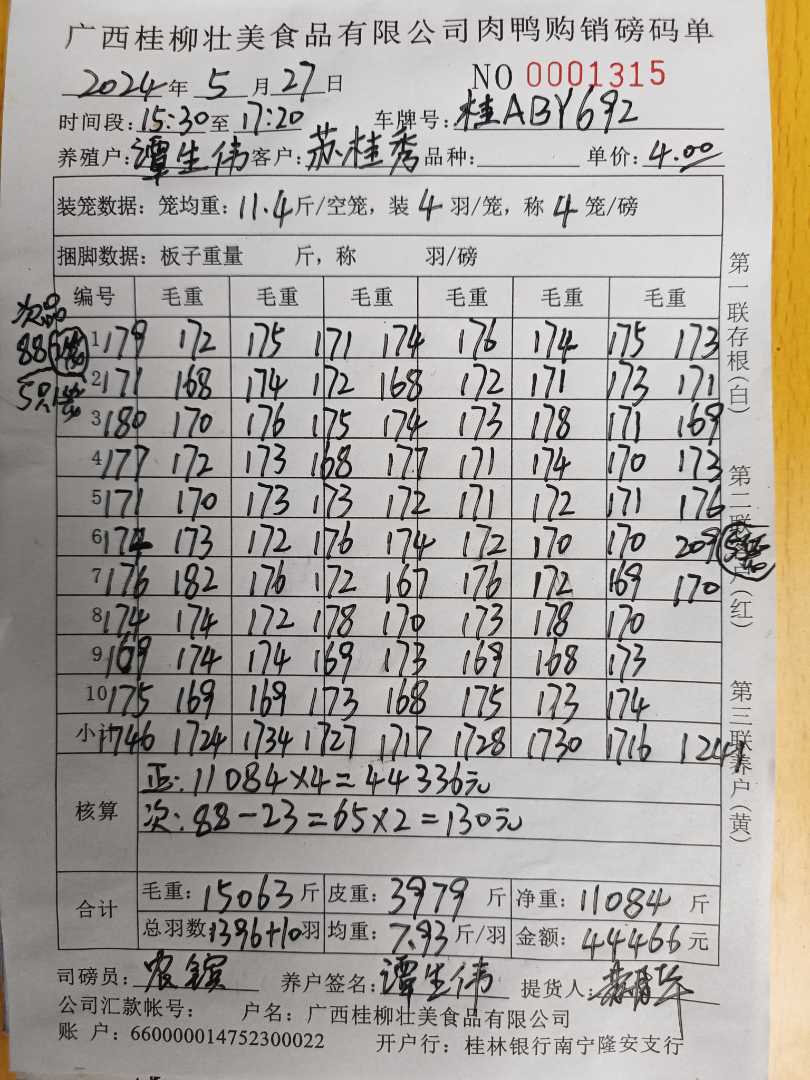 广西桂柳壮美食品有限公司肉鸭购销磅码单
2024年 5 月 27 日 NO 0001315
时间段: 15:30 至 17:20 车牌号: 桂ABY692
养殖户: 谭生伟 客户: 苏桂秀 品种: 单价: 4.00
装笼数据: 笼均重: 11.4 斤/空笼, 装 4 羽/笼, 称 4 笼/磅
捆脚数据: 板子重量 斤, 称 羽/磅
编号 毛重 毛重 毛重 毛重 毛重 毛重
次品
1 179 172 175 171 174 176 174 175 173
88
2 171 168 174 172 168 172 171 173 171
5只
3 180 170 176 175 174 173 178 171 169
4 177 172 173 168 177 171 174 170 173
5 171 170 173 173 172 171 172 171 176
6 174 173 172 176 174 172 170 170 209
7 176 182 176 172 167 176 172 169 170
8 174 174 172 178 170 173 178 170
9 169 174 174 169 173 169 168 173
10 175 169 169 173 168 175 173 174
小计 1746 1724 1734 1727 1717 1728 1730 1716 1241
核算
正: 11084×4=44336元
次: 88-23=65×2=130元
合计
毛重: 15063 斤 皮重: 3979 斤 净重: 11084 斤
总羽数: 1396+10 羽 均重: 7.93 斤/羽 金额: 44466 元
司磅员: 养户签名: 谭生伟 提货人:
公司汇款帐号: 户名: 广西桂柳壮美食品有限公司
账 户: 660000014752300022 开户行: 桂林银行南宁隆安支行
第一联存根(白)
第二联客户(红)
第三联养户(黄)